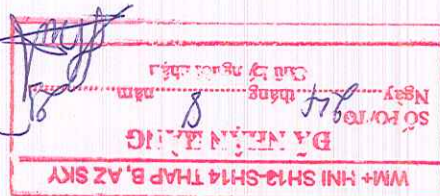 WM+ HNI SH13-SH14 THAP B, AZ SKY
ĐÃ NHẬN HÀNG
SỐ PO/TO
Ngày tháng 8 năm
Chữ ký người nhận